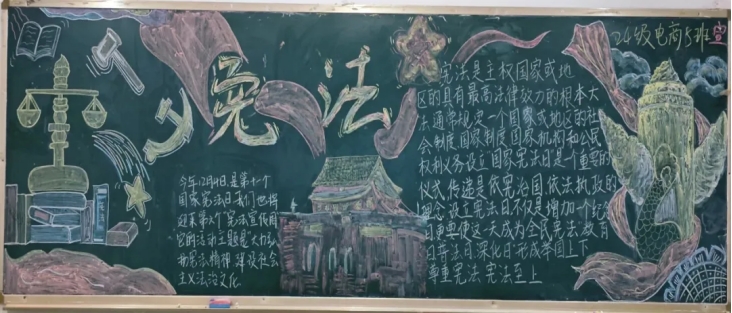 宪法
24级电商3班宣
今年12月4日是第十一个
国家宪法日我们也将
迎来第7个"宪法宣传周"
宣传活动主题是"大力弘
扬宪法精神 建设社会
主义法治文化
宪法是主权国家或地
区的具有最高法律效力的根本大
法通常规定一个国家或地区的社
会制度国家制度国家机构和公民
权利义务设立国家宪法日是一个重要的
仪式传递是依宪治国依法执政的
理念设立宪法日不仅是增加一个纪念
日更要使这一天成为全民宪法教育
日普法日深化日形成举国上下
尊重宪法 宪法至上